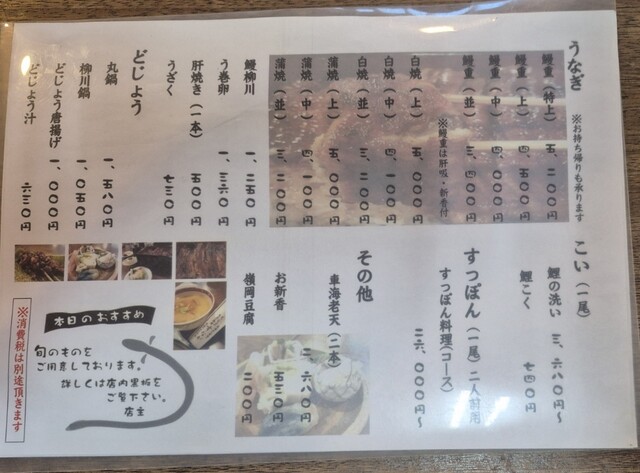 うなぎ
※お持ち帰りも承ります
鰻重（特上） 五、二〇〇円
鰻重（上） 四、五〇〇円
鰻重（中） 四、〇〇〇円
鰻重（並） 三、四〇〇円
※鰻重は肝吸・新香付
白焼（上） 五、〇〇〇円
白焼（中） 四、一〇〇円
白焼（並） 三、二〇〇円
蒲焼（上） 五、〇〇〇円
蒲焼（中） 四、一〇〇円
蒲焼（並） 三、二〇〇円
鰻柳川 一、二五〇円
う巻卵 一、三六〇円
肝焼き（一本） 五〇〇円
うざく 七三〇円
どじょう
丸鍋 一、五八〇円
柳川鍋 一、〇五〇円
どじょう唐揚げ 一、〇〇〇円
どじょう汁 六三〇円
こい（一尾）
鯉の洗い 三、六八〇円〜
鯉こく 七四〇円
すっぽん（一尾）二人前用
すっぽん料理（コース） 二六、〇〇〇円〜
その他
車海老天（二本） 二、六八〇円
お新香 五三〇円
嶺岡豆腐 二〇〇円
本日のおすすめ
旬のものを
ご用意しております。
詳しくは店内黒板を
ご覧下さい。
店主
※消費税は別途頂きます